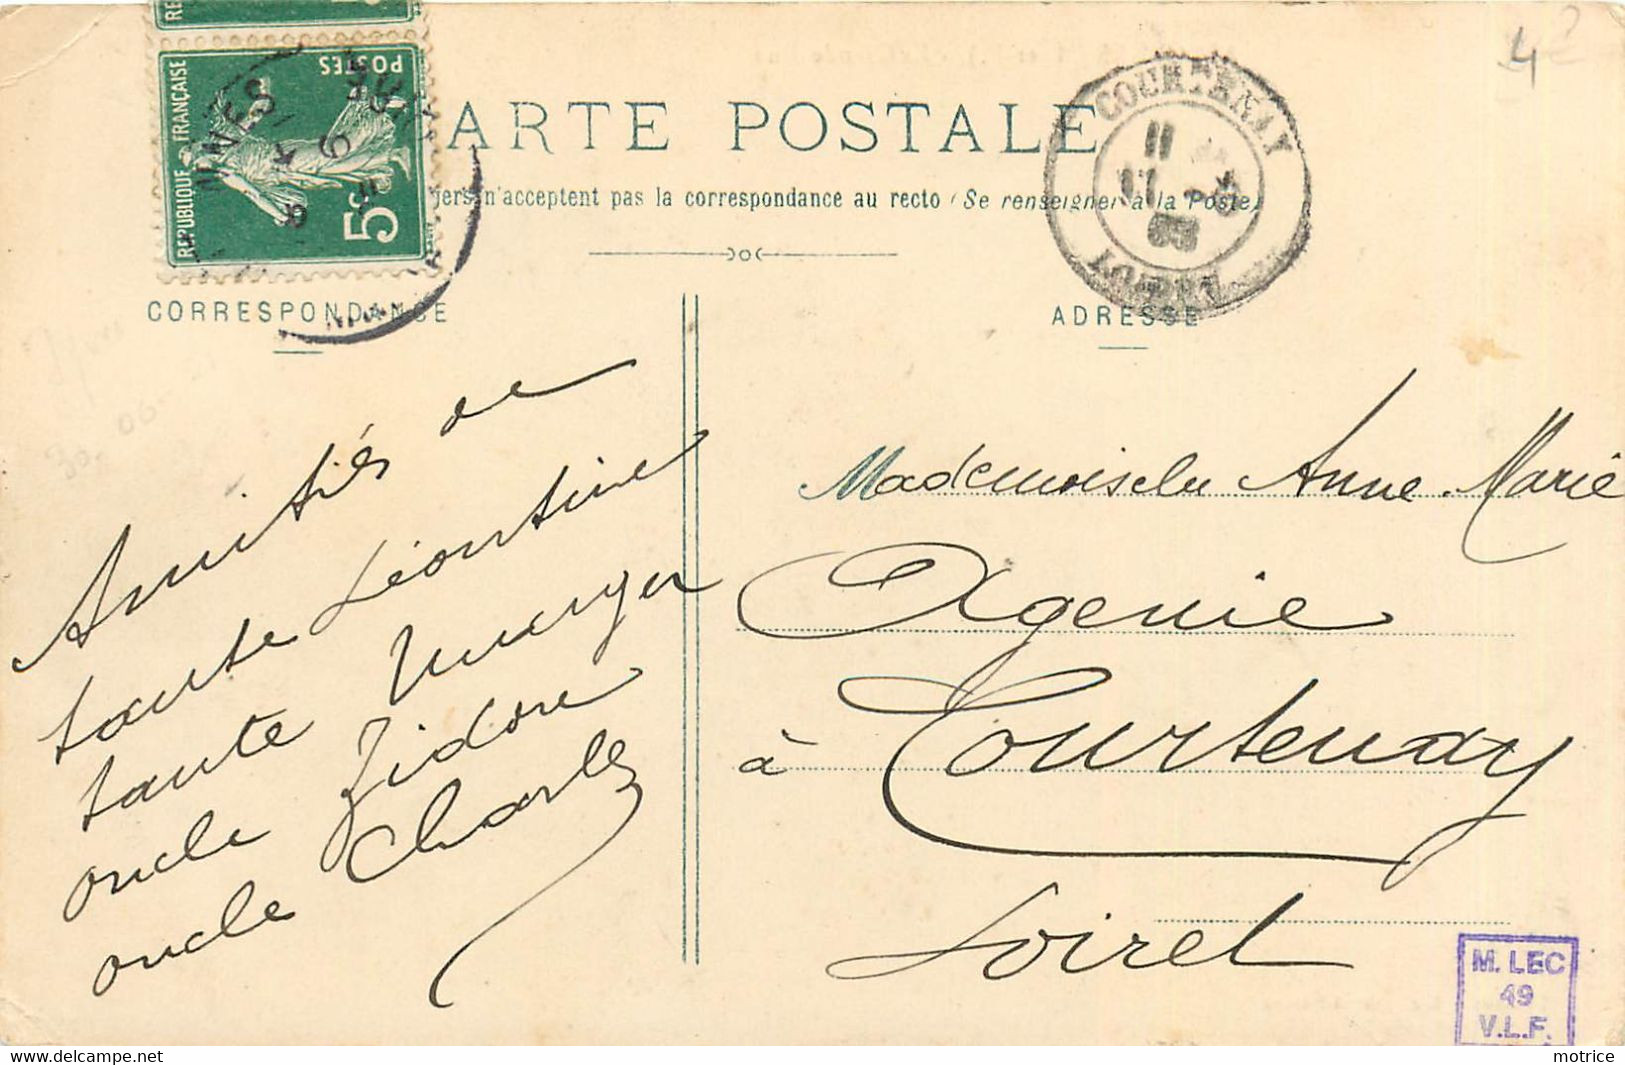 4
RE
REPUBLIQUE FRANÇAISE
POSTES
5c
ARTE POSTALE
gers n'acceptent pas la correspondance au recto (Se renseigner à la Poste)
COURTENAY
11
LOIRET
CORRESPONDANCE
ADRESSE
Amitiés de
tante Léontine
tante
oncle Isidore
oncle Charles
Mademoiselle Anne Marie
Agenie
à Courtenay
Loiret
M. LEC
49
V.L.F.
motrice
www.delcampe.net